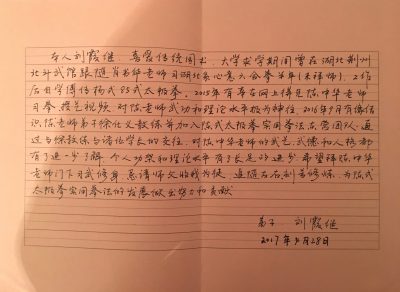 本人刘霞继，喜爱传统国术，大学求学期间曾在湖北荆州
北斗武馆跟随肖书华老师习湖北系心意六合拳半年(未拜师)。工作
后自学传统杨式85式太极拳。2015年有幸在网上得见陈中华老师
习拳授艺视频，对陈老师武功和理论水平极为神往，2016年9月有缘结
识陈老师弟子徐仕义教练并加入陈式太极拳实用拳法东营团队，通
过与徐教练与诸位学长的交往，对陈中华老师的武艺、武德和人格都
有了进一步了解，个人功架和理论水平有了长足的进步，希望拜陈中华
老师门下习武修身，恳请师父能收我为徒，追随左右刻苦修炼，为陈式
太极拳实用拳法的发展做出努力和贡献
弟子 刘霞继
2017年9月28日